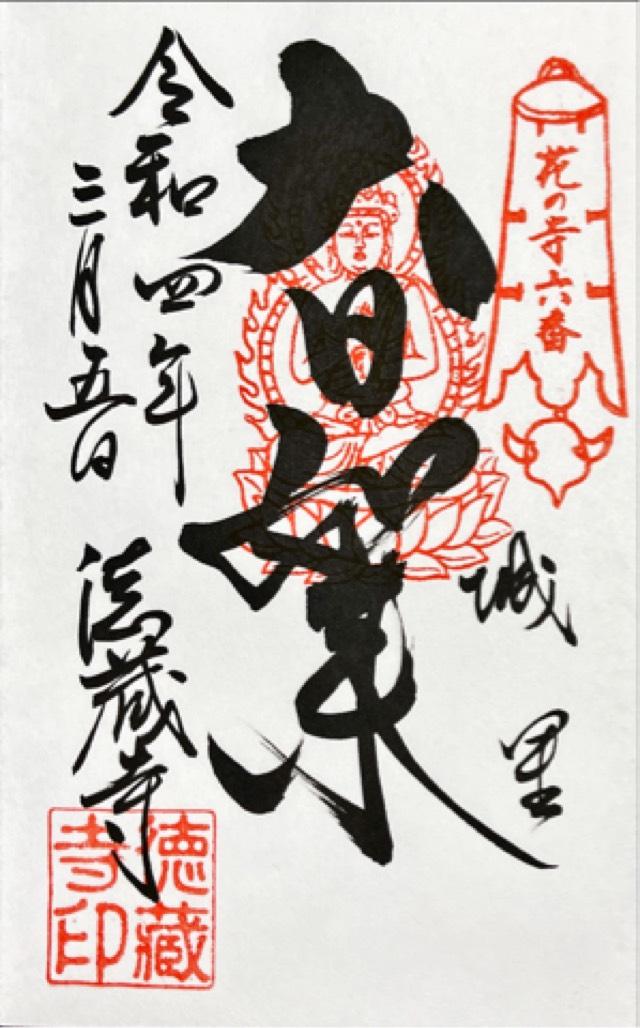 花の寺六番
城里
大日如来
令和四年
三月五日
徳蔵寺
徳藏
寺印